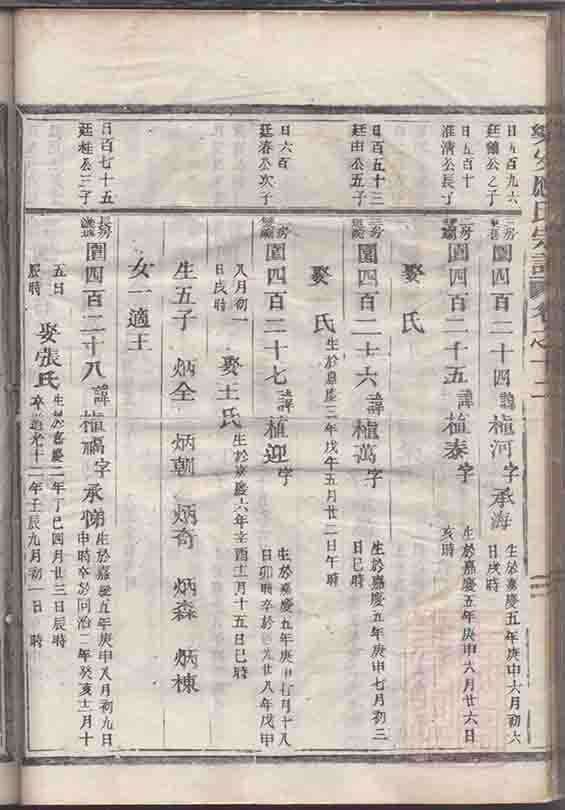 氏宗譜
日五百九六
廷公之子
圍四百二十四諱植河字承海
生於嘉慶五年庚申六月初六
日戌時
日五百十
淮清公長子
圍四百二十五諱植泰字
生於嘉慶五年庚申六月廿六日
亥時
娶氏
日百五十二
廷由公五子
圍四百二十六諱植萬字
生於嘉慶五年庚申七月初三
日巳時
娶氏
生於嘉慶三年戊午五月廿二日午時
日六百
廷春公次子
圍四百二十七諱植迎字
生於嘉慶五年庚申月十八
日卯時卒於光廿八年戊申
八月初一
日戌時
娶王氏
生於嘉慶六年辛酉十二月十五日巳時
生五子 炳全 炳朝 炳奇 炳森 炳棟
女一適王
日百七十五
廷桂公三子
長房
圍四百二十八諱植福字承悌
生於嘉慶五年庚申八月初九日
申時卒於同治二年癸亥十二月十
五日
辰時
娶張氏
生於嘉慶二年丁巳四月廿三日辰時
卒道光十二年壬辰九月初一日 時